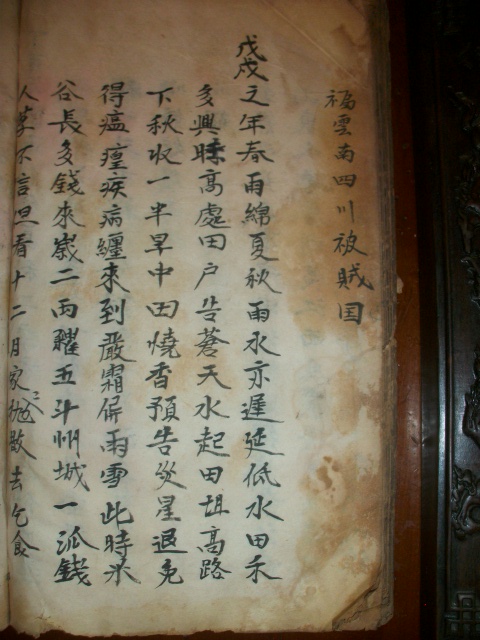 福雲南四川被賊国
戊戌之年春雨綿夏秋雨水亦遲延低水田禾
多興睡高處田户告蒼天水起田坦高路
下秋收一半早中田燒香預告災星退免
得瘟瘟疾病纏來到嚴霜併雨雪此時米
谷長多錢來歲二両糴五斗州城一派錢
人享不言旦看十二月家家抛散去乞食